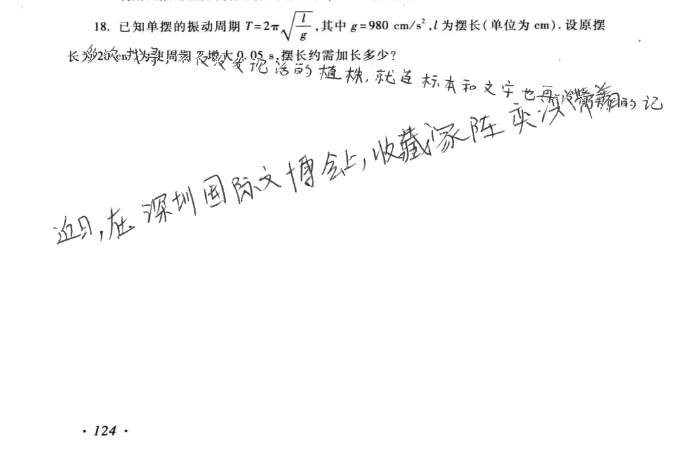 18. 已知单摆的振动周期 T=2π√(l/g),其中 g=980 cm/s²,l 为摆长(单位为 cm).设原摆
长为20 cm,为使周期 T 增大 0.05 s,摆长约需加长多少?
多次找寻,没发现活的植株,就连标本和文字也再的记
近日,在深圳国际文博会上,收藏家陈奕滨
· 124 ·